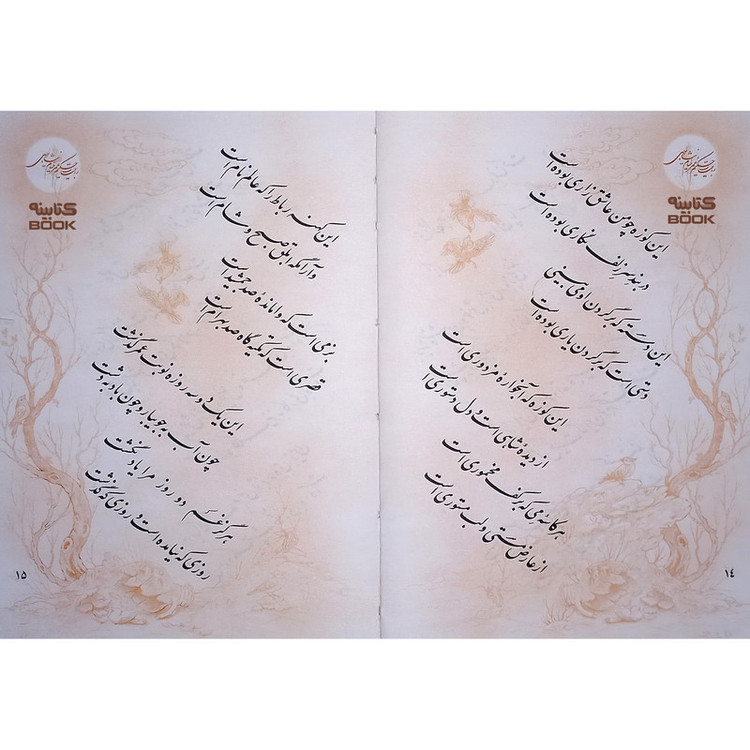 کتابینه
BOOK
این کوزه چو من عاشق زاری بوده است
در بند سر زلف نگاری بوده است
این دسته که بر گردن او می‌بینی
دستی است که بر گردن یاری بوده است
این کوزه که آبخواره مزدوری است
از دیده شاهی است و دل دستوری است
هر کاسه می که بر کف مخموری است
از عارض مستی و لب مستوری است
۱۴
کتابینه
BOOK
این کهنه رباط را که عالم نام است
وآرامگه ابلق صبح و شام است
بزمی است که وامانده صد جمشید است
قصری است که تکیه‌گاه صد بهرام است
این یک دو سه روزه نوبت عمر گذشت
چون آب به جویبار و چون باد به دشت
هرگز غم دو روز مرا یاد نگشت
روزی که نیامده است و روزی که گذشت
۱۵